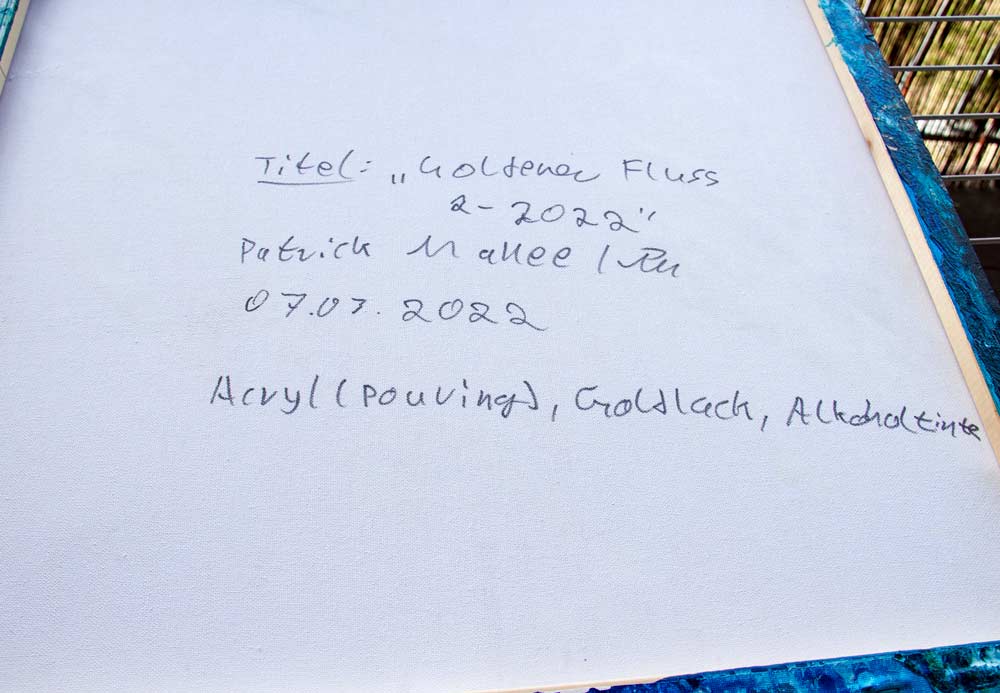 Titel: „Goldener Fluss
2-2022"
Patrick
07.03.2022
Acryl (pouring), Goldlack, Alkoholtinte